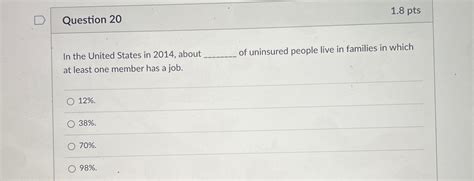 Question 20
1.8 pts
In the United States in 2014, about ________ of uninsured people live in families in which
at least one member has a job.
12%.
38%.
70%.
98%.